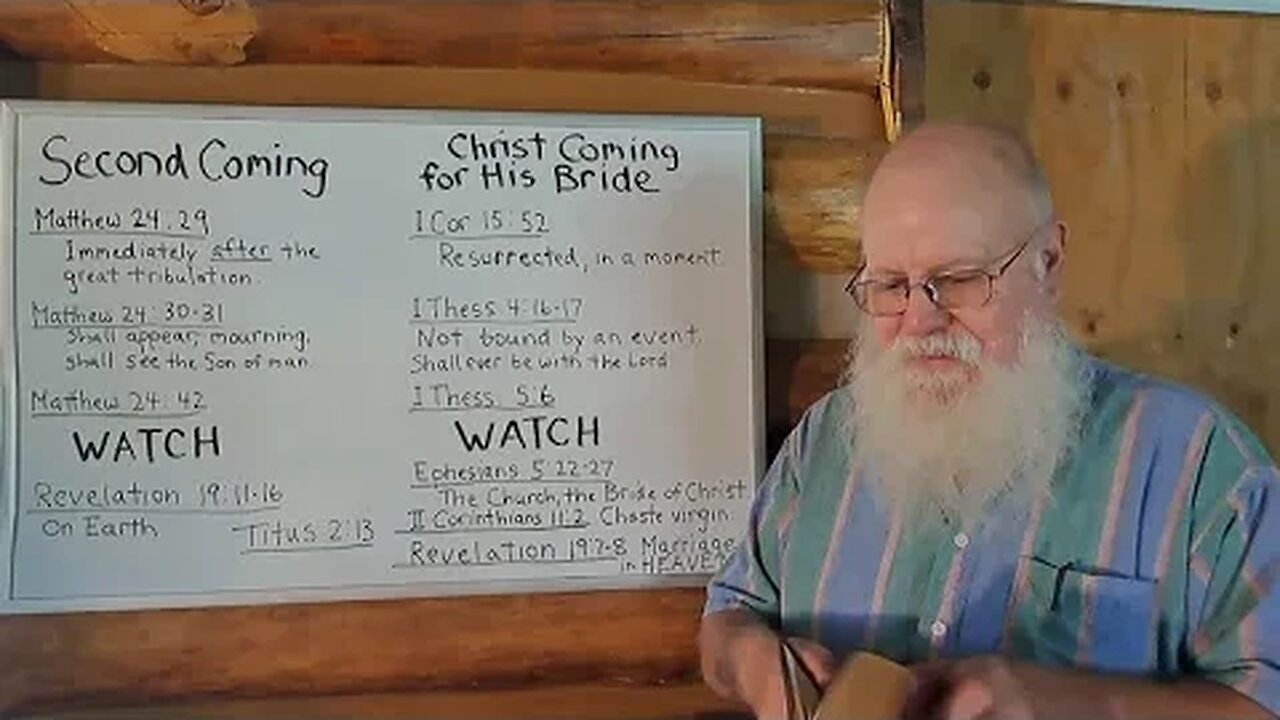 Second Coming
Matthew 24:29
Immediately after the
great tribulation.
Matthew 24:30-31
Shall appear, mourning,
shall see the Son of man
Matthew 24:42
WATCH
Revelation 19:11-16
On Earth
Titus 2:13
Christ Coming
for His Bride
I Cor 15:52
Resurrected, in a moment
I Thess 4:16-17
Not bound by an event
Shall ever be with the Lord
I Thess 5:6
WATCH
Ephesians 5:22-27
The Church, the Bride of Christ
II Corinthians 11:2 Chaste virgin
Revelation 19:7-8 Marriage
in HEAVEN